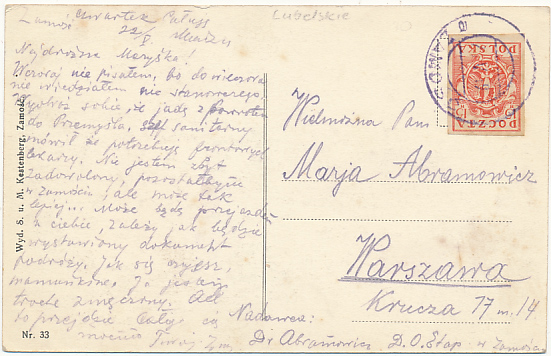 Lubelskie
Zamość czwartek
22/V
Najdroższa Maryśko!
Wczoraj nie pisałem, bo do wieczora
nie wiedziałem nic stanowczego.
sobie, że jadę z powrotem
do Przemyśla, sanitarny
mówił że potrzebuje frontowych
lekarzy. Nie jestem zbyt
zadowolony, pozostałbym
w Zamościu, ale może tak
lepiej. Może będę przejazdem
u ciebie, zależy jak będzie
wystawiony dokument
podróży. Jak się czujesz,
mamusiu. Ja jestem
trochę zmęczony. Ale
to przejdzie Całuję cię
mocno Twój
Wielmożna Pani
Marja Abramowicz
Warszawa
Krucza 17 m. 14
Nadawca:
Dr Abramowicz D.O.Etap. w Zamościu
POLSKA
POCZTA
Wyd. S. u. M. Kestenberg, Zamość.
Nr. 33